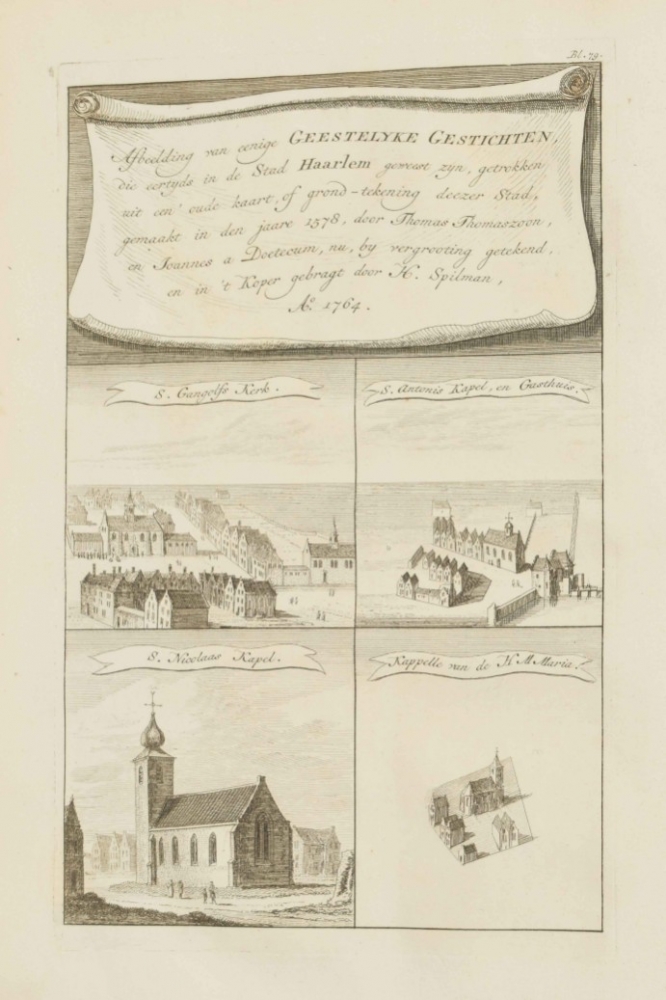 Bl. 79.
Afbeelding van eenige GEESTELYKE GESTICHTEN,
die eertyds in de Stad Haarlem geweest zyn, getrokken
uit een' oude kaart, of grond-tekening deezer Stad,
gemaakt in den jaare 1578, door Thomas Thomaszoon,
en Joannes a Doetecum, nu, by vergrooting getekend,
en in 't Koper gebragt door H. Spilman,
Aº. 1764.
S. Gangolfs Kerk.
S. Antonis Kapel, en Gasthuis.
S. Nicolaas Kapel.
Kappelle van de H. M. Maria.